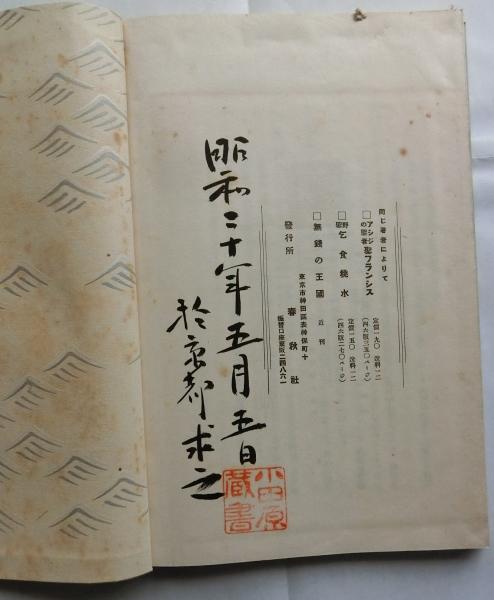 同じ著者によりて
□アシジの聖者 聖フランシス
定價一九〇 送料一二
(四六版三五〇ページ)
□野聖 乞食桃水
定價一五〇 送料一二
(四六版二七〇ページ)
□無錢の王國 近刊
發行所
東京市神田區表神保町十
春秋社
振替口座東京二四八六一
昭和二十年五月五日
於京都求之
小田原
藏書